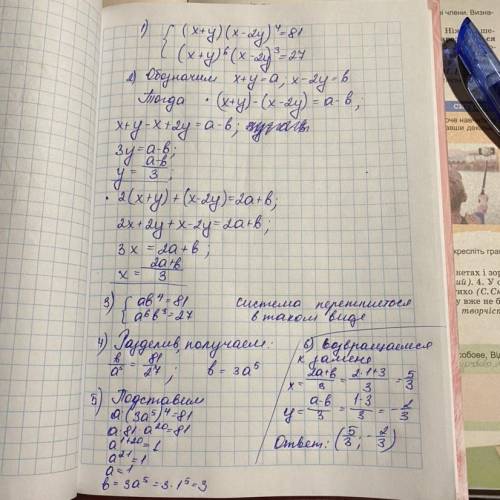 1) { (x+y)(x-2y)⁴=81
(x+y)⁶(x-2y)³=27
2) Обозначим x+y=a, x-2y=в
Тогда • (x+y)-(x-2y)=a-в;
x+y-x+2y=a-в;
3y=a-в;
y=a-в/3;
• 2(x+y)+(x-2y)=2a+в;
2x+2y+x-2y=2a+в;
3x=2a+в;
x=2a+в/3
3) { aв⁴=81
a⁶в³=27
система перепишется
в таком виде
4) Разделив, получаем:
в/a⁵=81/27; в=3a⁵
5) Подставим
a·(3a⁵)⁴=81
a·81·a²⁰=81
a¹⁺²⁰=1
a²¹=1
a=1
в=3a⁵=3·1⁵=3
6) Возвращаемся
к замене
x=2a+в/3=2·1+3/3=5/3
y=a-в/3=1-3/3=-2/3
Ответ: (5/3; -2/3)